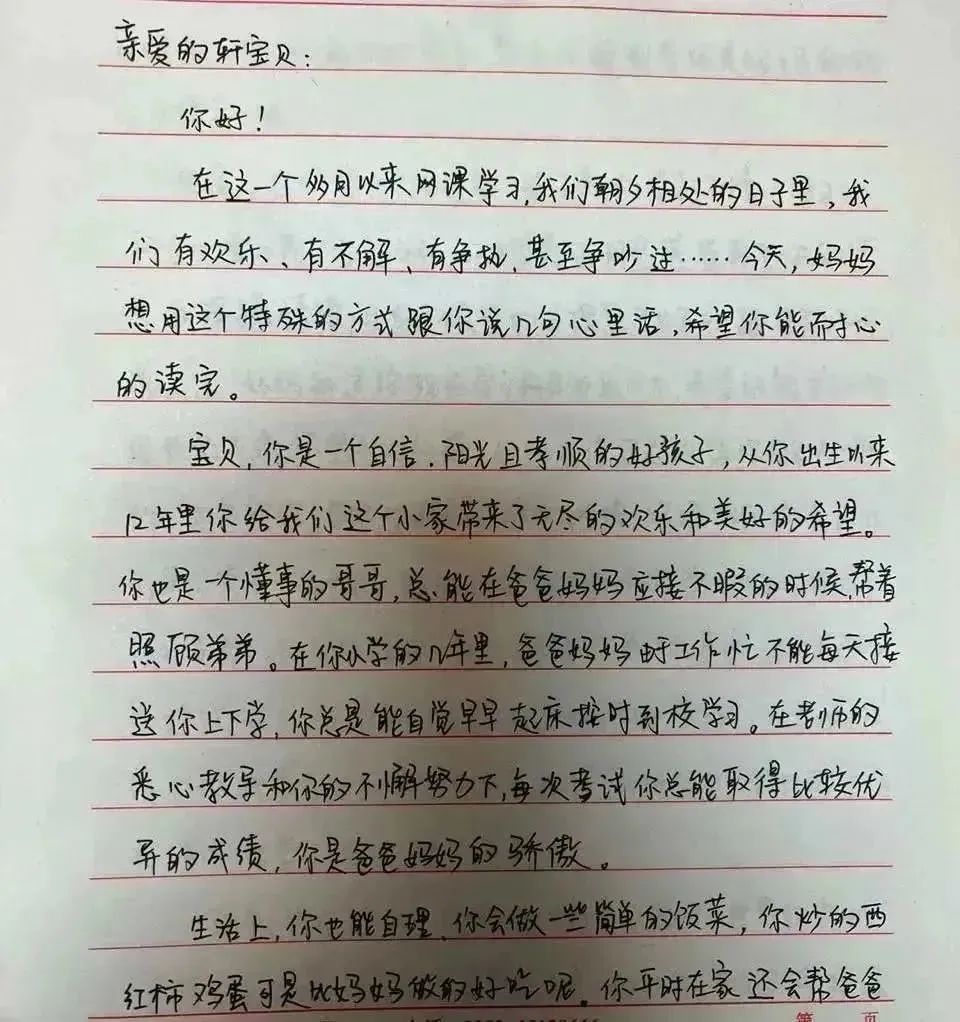 亲爱的轩宝贝：
你好！
在这一个多月以来网课学习，我们朝夕相处的日子里，我
们有欢乐、有不解、有争执、甚至争吵过……今天，妈妈
想用这个特殊的方式跟你说几句心里话，希望你能耐心
的读完。
宝贝，你是一个自信、阳光且孝顺的好孩子，从你出生以来
12年里你给我们这个小家带来了无尽的欢乐和美好的希望。
你也是一个懂事的哥哥，总能在爸爸妈妈应接不暇的时候，帮着
照顾弟弟。在你小学的几年里，爸爸妈妈由于工作忙不能每天接
送你上下学，你总是能自觉早早起床按时到校学习。在老师的
悉心教导和你的不懈努力下，每次考试你总能取得比较优
异的成绩，你是爸爸妈妈的骄傲。
生活上，你也能自理，你会做一些简单的饭菜，你炒的西
红柿鸡蛋可是比妈妈做的好吃呢。你平时在家还会帮爸爸
第 页